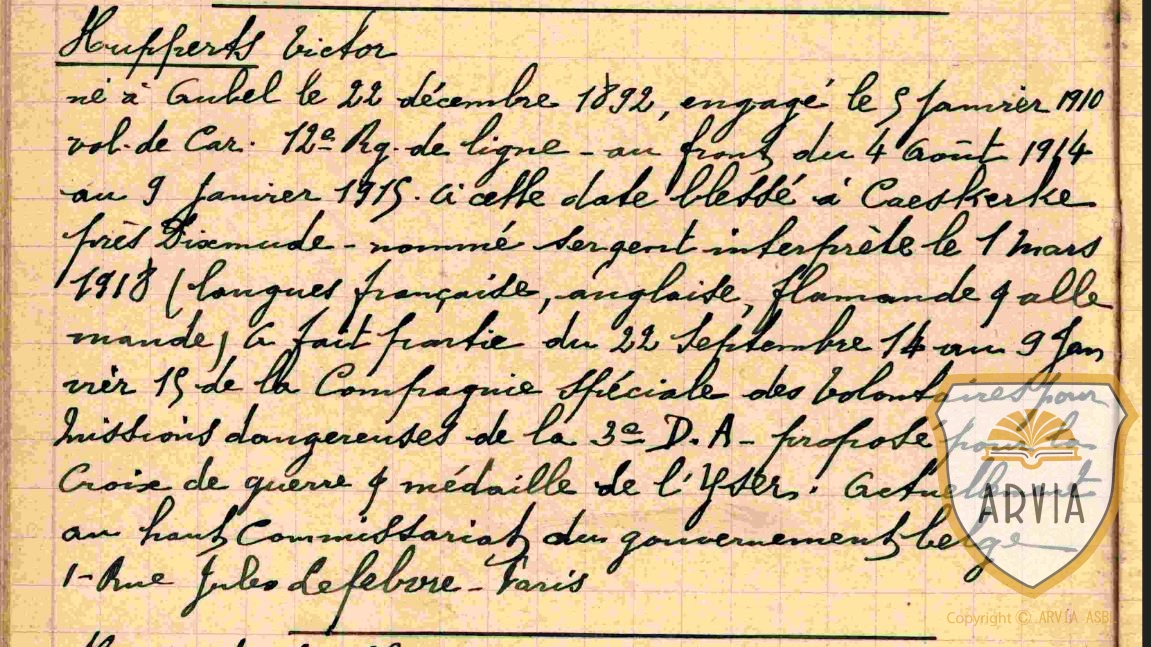 Hupperts Victor
né à Gubel le 22 décembre 1892, engagé le 5 Janvier 1910
vol. de Car. 12e Rg. de ligne - au front du 4 Août 1914
au 9 Janvier 1915. A cette date blessé à Caeskerke
près Dixmude - nommé sergent interprète le 1 Mars
1918 (langues française, anglaise, flamande & alle
mande) A fait partie du 22 Septembre 14 au 9 Jan
vier 15 de la Compagnie spéciale des Volontaires pour
Missions dangereuses de la 3e D.A - propose pour la
Croix de guerre & médaille de l'Yser. Actuellement
au haut Commissariat du gouvernement belge
1 - Rue Jules Lefebvre - Paris
ARVIA
Copyright © ARVIA ASB